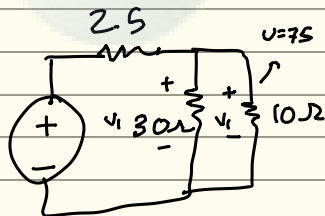 2.5
U=75
+ + +
V1 30Ω V1 10Ω
- - -